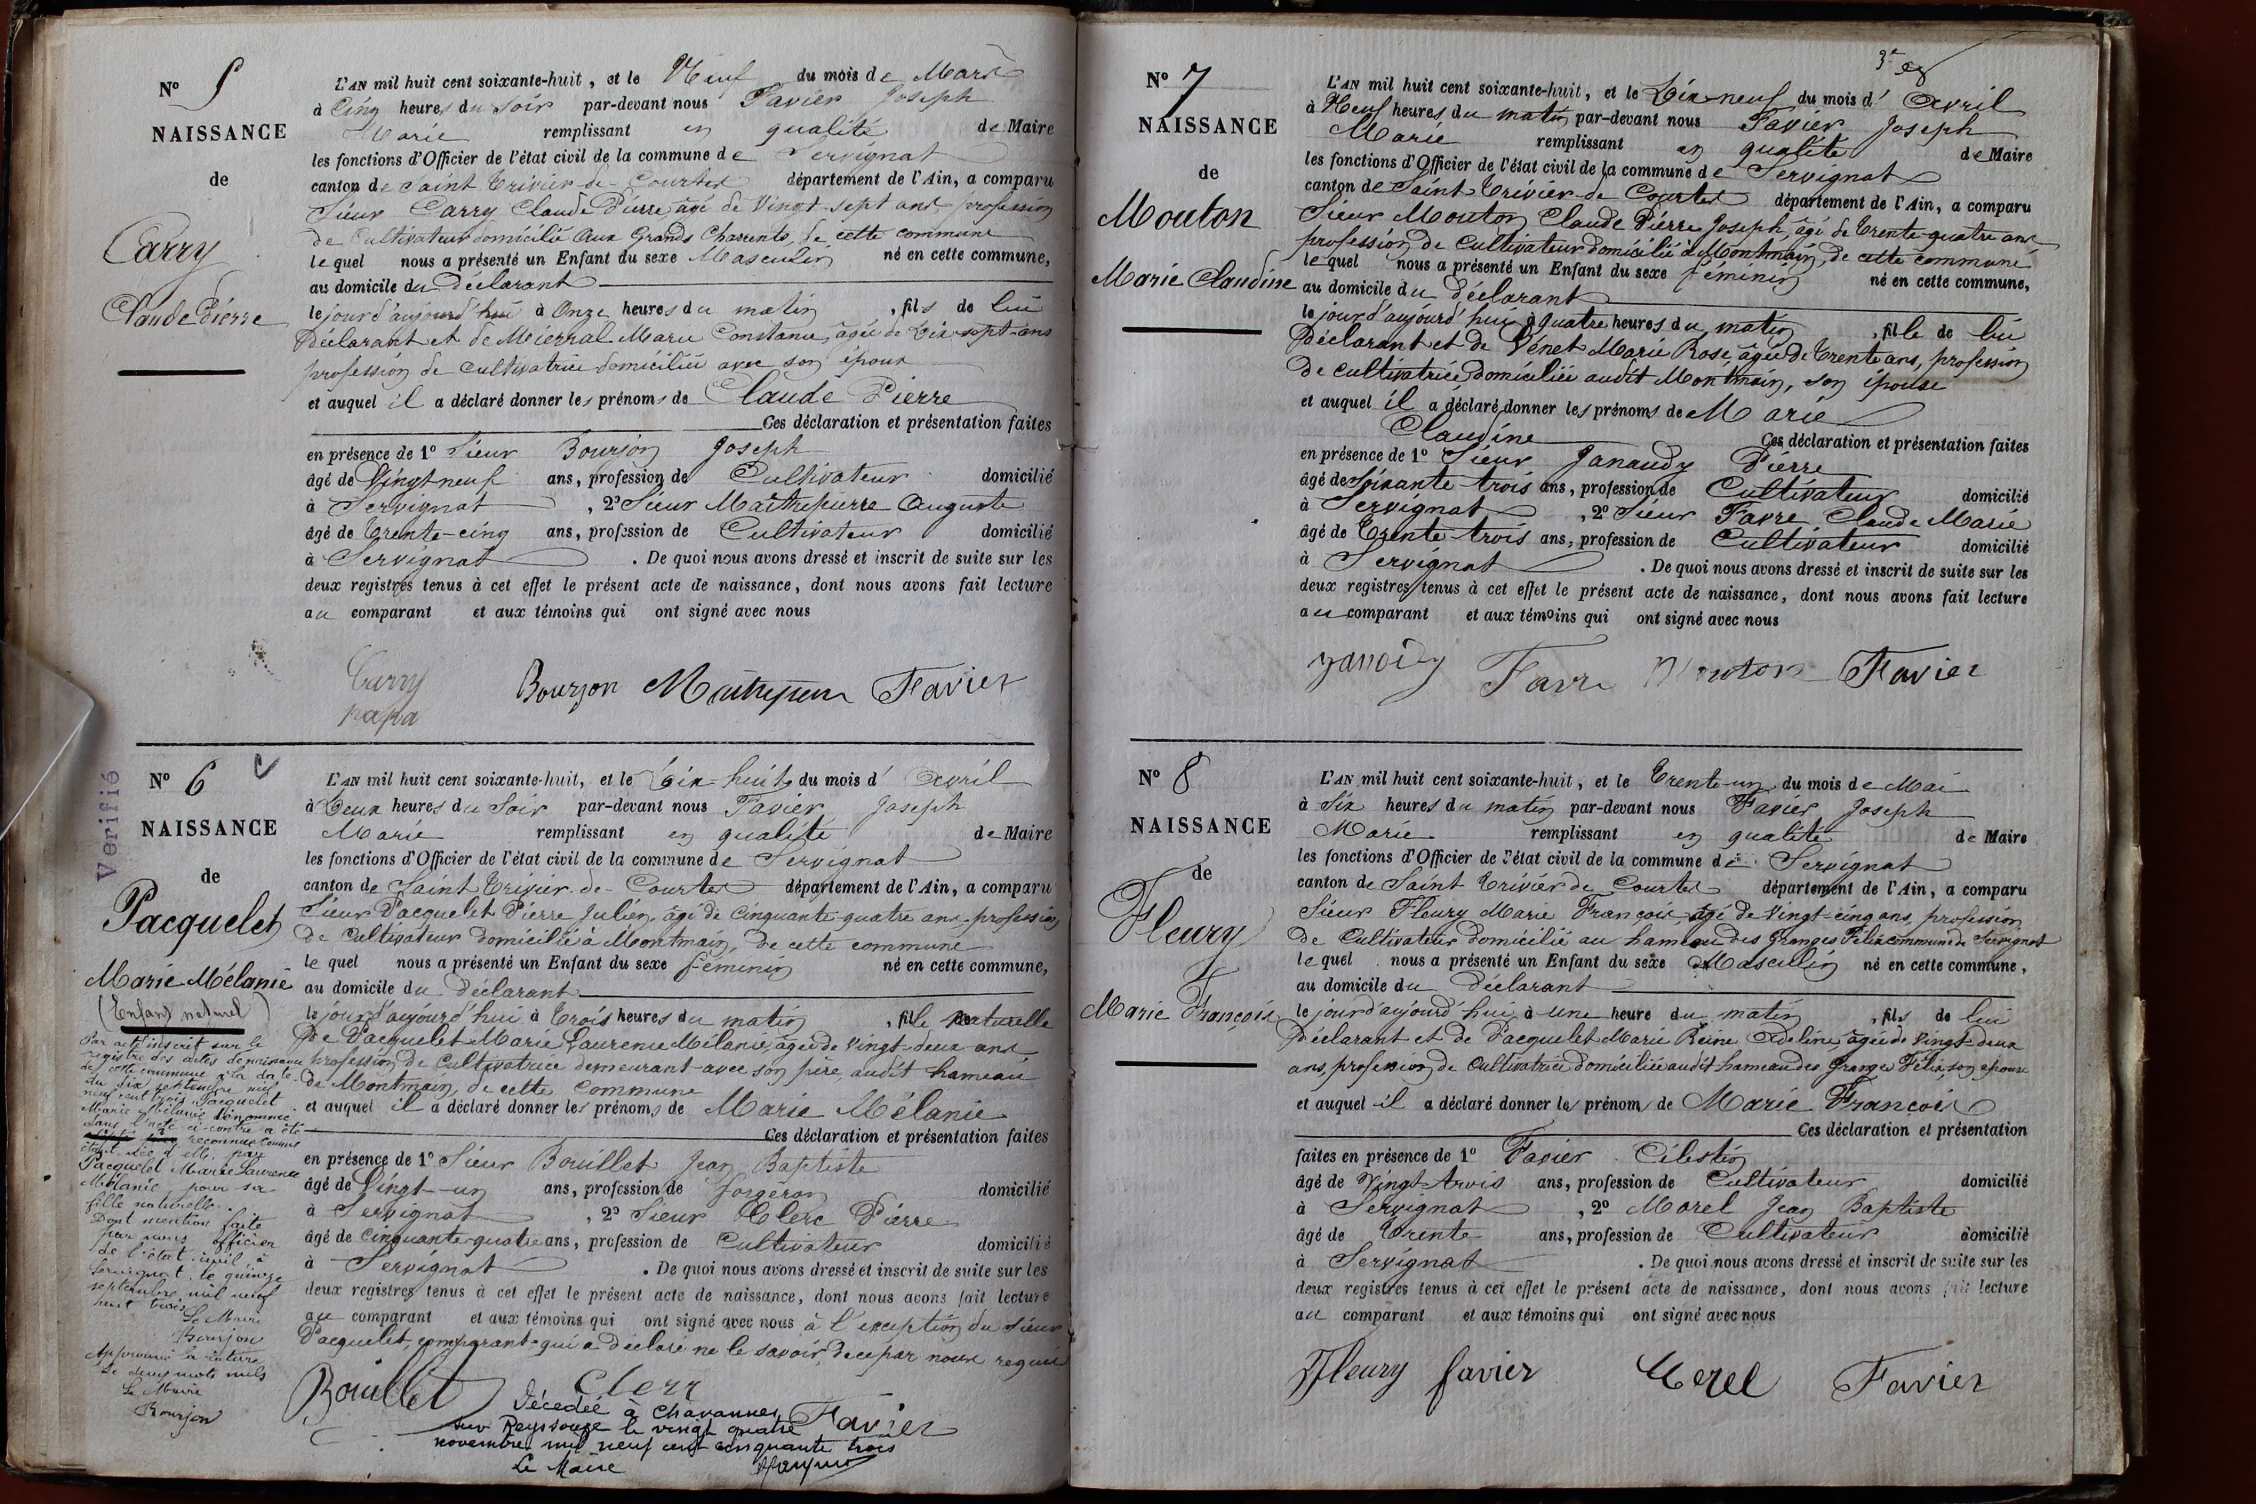 N° 5
NAISSANCE
de
Carry
Claude Pierre
L'AN mil huit cent soixante-huit, et le Neuf du mois de Mars
à Cinq heures du Soir par-devant nous Favier Joseph
Marie remplissant en qualité de Maire
les fonctions d'Officier de l'état civil de la commune de Servignat
canton de Saint Trivier-de-Courtes département de l'Ain, a comparu
Sieur Carry Claude Pierre, âgé de Vingt-sept ans, profession
de Cultivateur domicilié Aux Grands Charrents, de cette commune
lequel nous a présenté un Enfant du sexe Masculin né en cette commune,
au domicile du déclarant
le jour d'aujourd'hui à Onze heures du matin, fils de lui
Déclarant et de Mierral Marie Constance, âgée de Dix-sept-ans
profession de cultivatrice domiciliée avec son époux
et auquel il a déclaré donner les prénoms de Claude Pierre
Ces déclaration et présentation faites
en présence de 1° Sieur Bourjon Joseph
âgé de Vingt neuf ans, profession de Cultivateur domicilié
à Servignat, 2° Sieur Maîtrepierre Auguste
âgé de Trente-cinq ans, profession de Cultivateur domicilié
à Servignat. De quoi nous avons dressé et inscrit de suite sur les
deux registres tenus à cet effet le présent acte de naissance, dont nous avons fait lecture
au comparant et aux témoins qui ont signé avec nous
Carry Bourjon Maitrepierre Favier
papa
Vérifié
N° 6
NAISSANCE
de
Pacquelet
Marie Mélanie
(Enfant naturel)
Par acte inscrit sur le
registre des actes de naissance
de cette commune à la date
du dix septembre mil
neuf cent trois, Pacquelet
Marie Mélanie dénommée
dans l'acte ci-contre a été
reconnue comme
étant née d'elle, par
Pacquelet Marie Laurence
Mélanie pour sa
fille naturelle.
Dont mention faite
par nous officier
de l'état civil à
Servignat, le quinze
septembre mil neuf
cent trois
Le Maire
Bourjon
Approuvé la rature
de deux mots nuls
Le Maire
Bourjon
L'AN mil huit cent soixante-huit, et le Dix-huit du mois d'Avril
à Deux heures du Soir par-devant nous Favier Joseph
Marie remplissant en qualité de Maire
les fonctions d'Officier de l'état civil de la commune de Servignat
canton de Saint Trivier-de-Courtes département de l'Ain, a comparu
Sieur Pacquelet Pierre Julien, âgé de Cinquante-quatre ans, profession
de Cultivateur domicilié à Montmain, de cette commune
lequel nous a présenté un Enfant du sexe féminin né en cette commune,
au domicile du déclarant
le jour d'aujourd'hui à Trois heures du matin, fille naturelle
De Pacquelet Marie Laurence Mélanie, âgée de Vingt-deux-ans
profession de Cultivatrice demeurant avec son père, audit hameau
de Montmain, de cette commune
et auquel il a déclaré donner les prénoms de Marie Mélanie
Ces déclaration et présentation faites
en présence de 1° Sieur Bouillet Jean Baptiste
âgé de Vingt-un ans, profession de forgeron domicilié
à Servignat, 2° Sieur Clerc Pierre
âgé de Cinquante-quatre ans, profession de Cultivateur domicilié
à Servignat. De quoi nous avons dressé et inscrit de suite sur les
deux registres tenus à cet effet le présent acte de naissance, dont nous avons fait lecture
au comparant et aux témoins qui ont signé avec nous à l'exception du Sieur
Pacquelet, comparant qui a déclaré ne le savoir, de ce par nous requis
Bouillet Clerc Favier
Décédée à Chavannes
sur Reyssouze le vingt quatre
novembre mil neuf cent cinquante trois
Le Maire
N° 7
NAISSANCE
de
Mouton
Marie Claudine
L'AN mil huit cent soixante-huit, et le Dix-neuf du mois d'Avril
à Neuf heures du matin par-devant nous Favier Joseph
Marie remplissant en qualité de Maire
les fonctions d'Officier de l'état civil de la commune de Servignat
canton de Saint Trivier-de-Courtes département de l'Ain, a comparu
Sieur Mouton Claude Pierre Joseph, âgé de Trente-quatre ans
profession de Cultivateur domicilié à Montmain, de cette commune
lequel nous a présenté un Enfant du sexe féminin né en cette commune,
au domicile du déclarant
le jour d'aujourd'hui à quatre heures du matin, fille de lui
Déclarant et de Vénet Marie Rose, âgée de Trente ans, profession
de cultivatrice domiciliée audit Montmain, son épouse
et auquel il a déclaré donner les prénoms de Marie
Claudine Ces déclaration et présentation faites
en présence de 1° Sieur Janaudy Pierre
âgé de Soixante-trois ans, profession de Cultivateur domicilié
à Servignat, 2° Sieur Favre Claude Marie
âgé de Trente-trois ans, profession de Cultivateur domicilié
à Servignat. De quoi nous avons dressé et inscrit de suite sur les
deux registres tenus à cet effet le présent acte de naissance, dont nous avons fait lecture
au comparant et aux témoins qui ont signé avec nous
Janody Favre Mouton Favier
N° 8
NAISSANCE
de
Fleury
Marie François
L'AN mil huit cent soixante-huit, et le Trente-un du mois de Mai
à Six heures du matin par-devant nous Favier Joseph
Marie remplissant en qualité de Maire
les fonctions d'Officier de l'état civil de la commune de Servignat
canton de Saint Trivier de Courtes département de l'Ain, a comparu
Sieur Fleury Marie François, âgé de Vingt-cinq ans, profession
de Cultivateur domicilié au hameau des Granges Félix commune de Servignat
lequel nous a présenté un Enfant du sexe Masculin né en cette commune,
au domicile du Déclarant
le jour d'aujourd'hui à une heure du matin, fils de lui
Déclarant et de Pacquelet Marie Reine Adeline, âgée de Vingt-deux
ans, profession de Cultivatrice domiciliée audit hameau des Granges Félix, son épouse
et auquel il a déclaré donner les prénoms de Marie François
Ces déclaration et présentation
faites en présence de 1° Favier Célestin
âgé de Vingt-trois ans, profession de Cultivateur domicilié
à Servignat, 2° Morel Jean Baptiste
âgé de Trente ans, profession de Cultivateur domicilié
à Servignat. De quoi nous avons dressé et inscrit de suite sur les
deux registres tenus à cet effet le présent acte de naissance, dont nous avons fait lecture
au comparant et aux témoins qui ont signé avec nous
Fleury favier Morel Favier